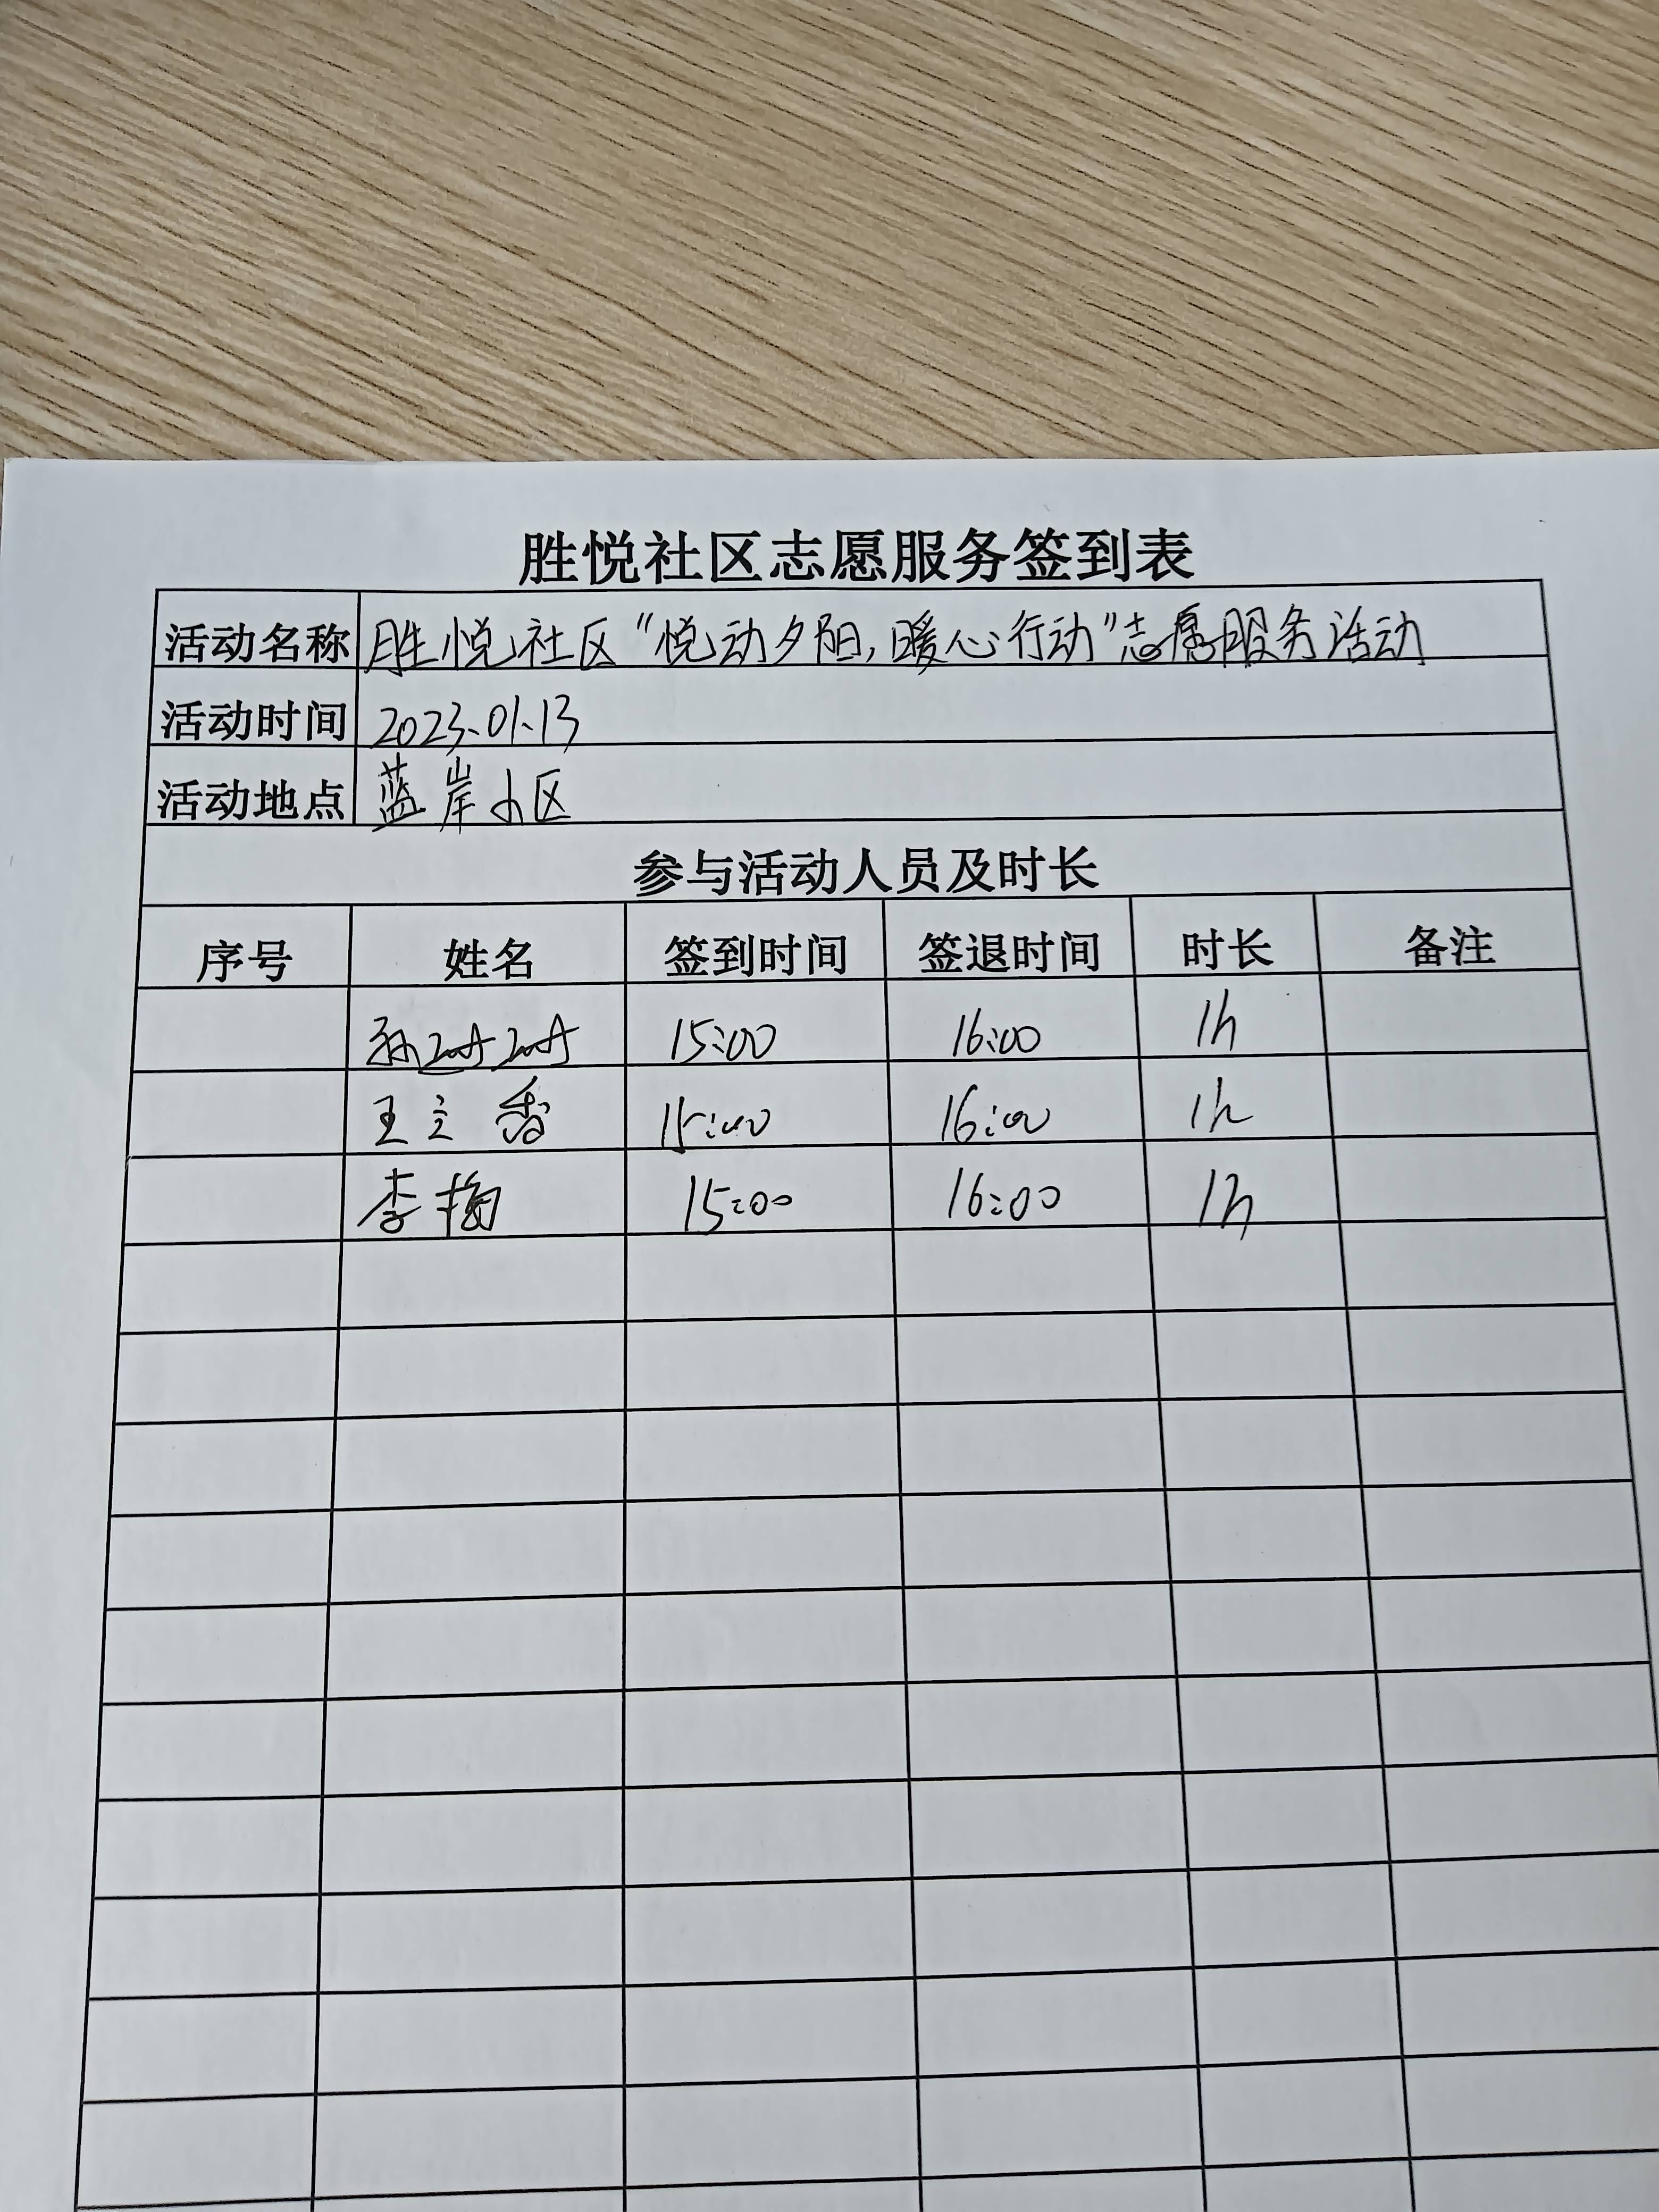 胜悦社区志愿服务签到表
活动名称 胜悦社区“悦动夕阳,暖心行动”志愿服务活动
活动时间 2023.01.13
活动地点 蓝岸小区
参与活动人员及时长
序号 姓名 签到时间 签退时间 时长 备注
孙 15:00 16:00 1h
王立香 15:00 16:00 1h
李梅 15:00 16:00 1h